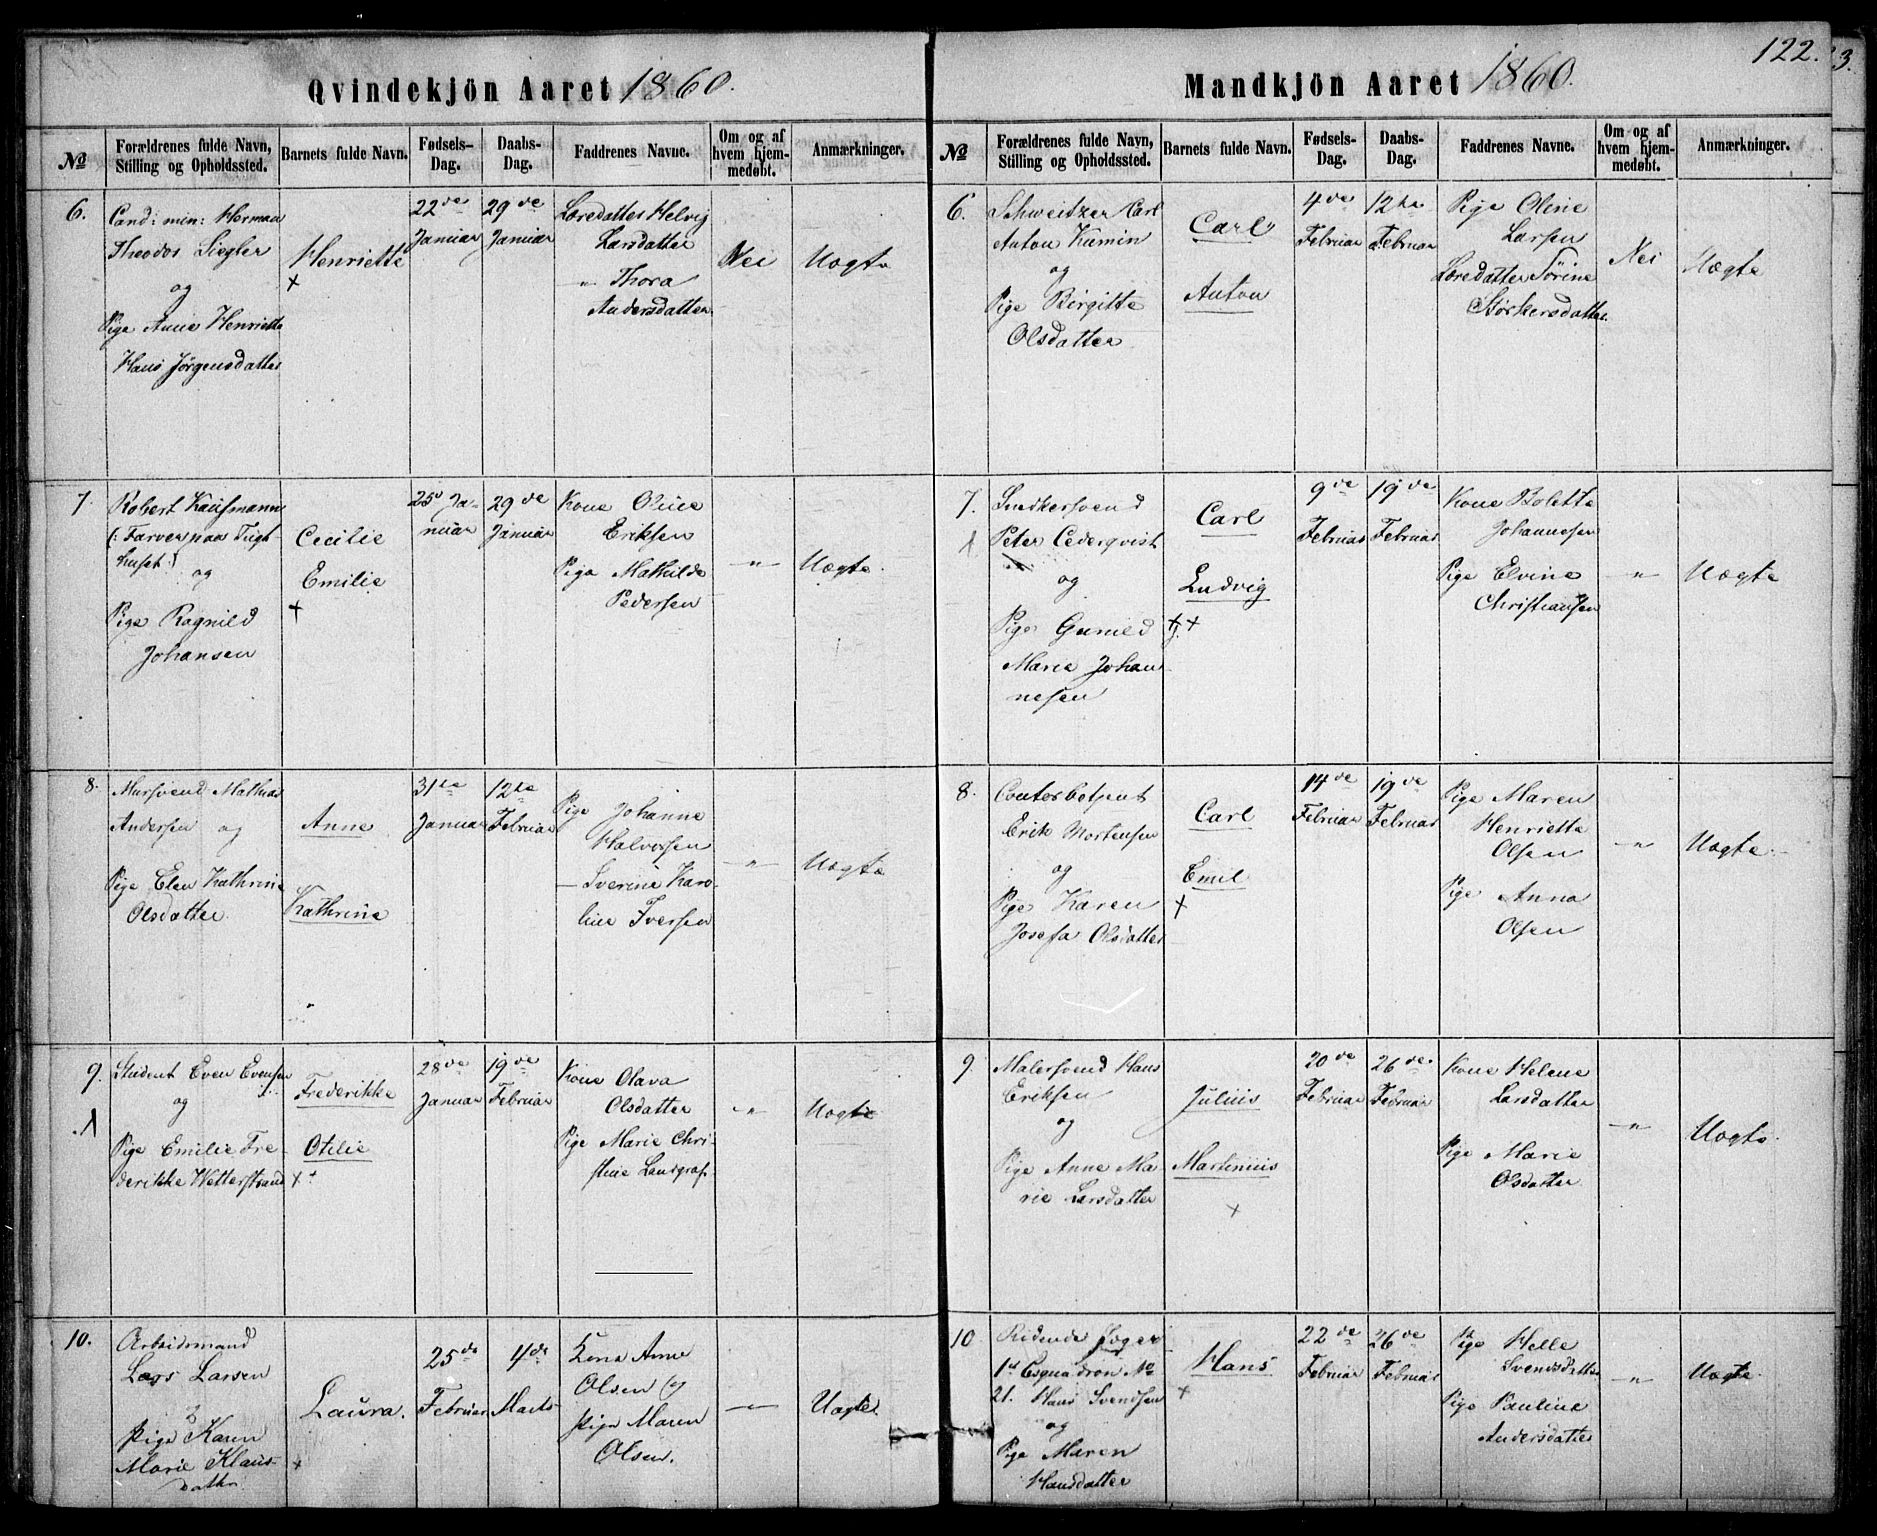 122.
3.
Qvindekjön Aaret 1860.
No
Forældrenes fulde Navn,
Stilling og Opholdssted.
Barnets fulde Navn.
Fødsels-
Dag.
Daabs-
Dag.
Faddrenes Navne.
Om og af
hvem hjem-
medøbt.
Anmærkninger.
6.
Cand: min: Herman
Theodor Siegler
og
Pige Anne Henriette
Hans Jørgensdatter
Henriette
+
22de
Januar
29de
Januar
Løsedatter Helvig
Larsdatter
" Thora
Andersdatter.
Nei
Uægte
7.
Robert Kaufmann
(: Farver paa Tugt-
huset :)
og
Pige Ragnild
Johansen
Cecilie
Emilie
+
25d Ja-
nuar
29de
Januar
Kone Oline
Eriksen
Pige Mathilde
Pedersen
"
Uægte.
8.
Mursvend Mathias
Andersen og
Pige Elen Kathrine
Olsdatter
Anne
Kathrine
31te
Januar
12te
Februar
Pige Johanne
Halvorsen
— Severine Karo-
line Iversen
"
Uægte
9.
Student Even Evensen
og
Pige Emilie Fre-
derikke Wetterstrand
Frederikke
Otilie
+ +
28de
Januar
19de
Februar
Kone Olava
Olsdatter
Pige Marie Chri-
stine Landgraf
"
Uægte
10.
Arbeidsmand
Lars Larsen
&
Pige Karen
Marie Klaus-
datter
Laura.
+
25de
Februar
4de
Marts
Kone Anne
Olsen og
Pige Maren
Olsen.
"
Uægte.
Mandkjön Aaret 1860.
No
Forældrenes fulde Navn,
Stilling og Opholdssted.
Barnets fulde Navn.
Fødsels-
Dag.
Daabs-
Dag.
Faddrenes Navne.
Om og af
hvem hjem-
medøbt.
Anmærkninger.
6.
Schweitzer Carl
Anton Kumin
og
Pige Birgitte
Olsdatter
Carl
Anton
4de
Februar
12te
Februar
Pige Oline
Larsen
Løsedatter Sørine
Størkersdatter.
Nei
Uægte
7.
Snedkersvend
Peter Cederqvist
og
Pige Gunild
Marie Johan
nesen
Carl
Ludvig
9de
Februar
19de
Februar
Kone Bolette
Johannesen
Pige Elvine
Christiansen
"
Uægte
8.
Contorbetjent
Erik Mortensen
og
Pige Karen
Josefa Olsdatter
Carl
Emil
+
14de
Februar
19de
Februar
Pige Maren
Henriette
Olsen
Pige Anna
Olsen
"
Uægte.
9.
Malersvend Hans
Eriksen
og
Pige Anne Ma-
rie Larsdatter
Julius
Martinius
+
20de
Februar
26de
Februar
Kone Helene
Larsdatter
Pige Marie
Olsdatter
"
Uægte.
10
Ridende Jæger
1st Esquadron No
21. Hans Svendsen
og
Pige Maren
Hansdatter
Hans
+
22de
Februar
26de
Februar
Pige Helle
Svendsdatter
Pige Pauline
Andersdatter
"
Uægte.